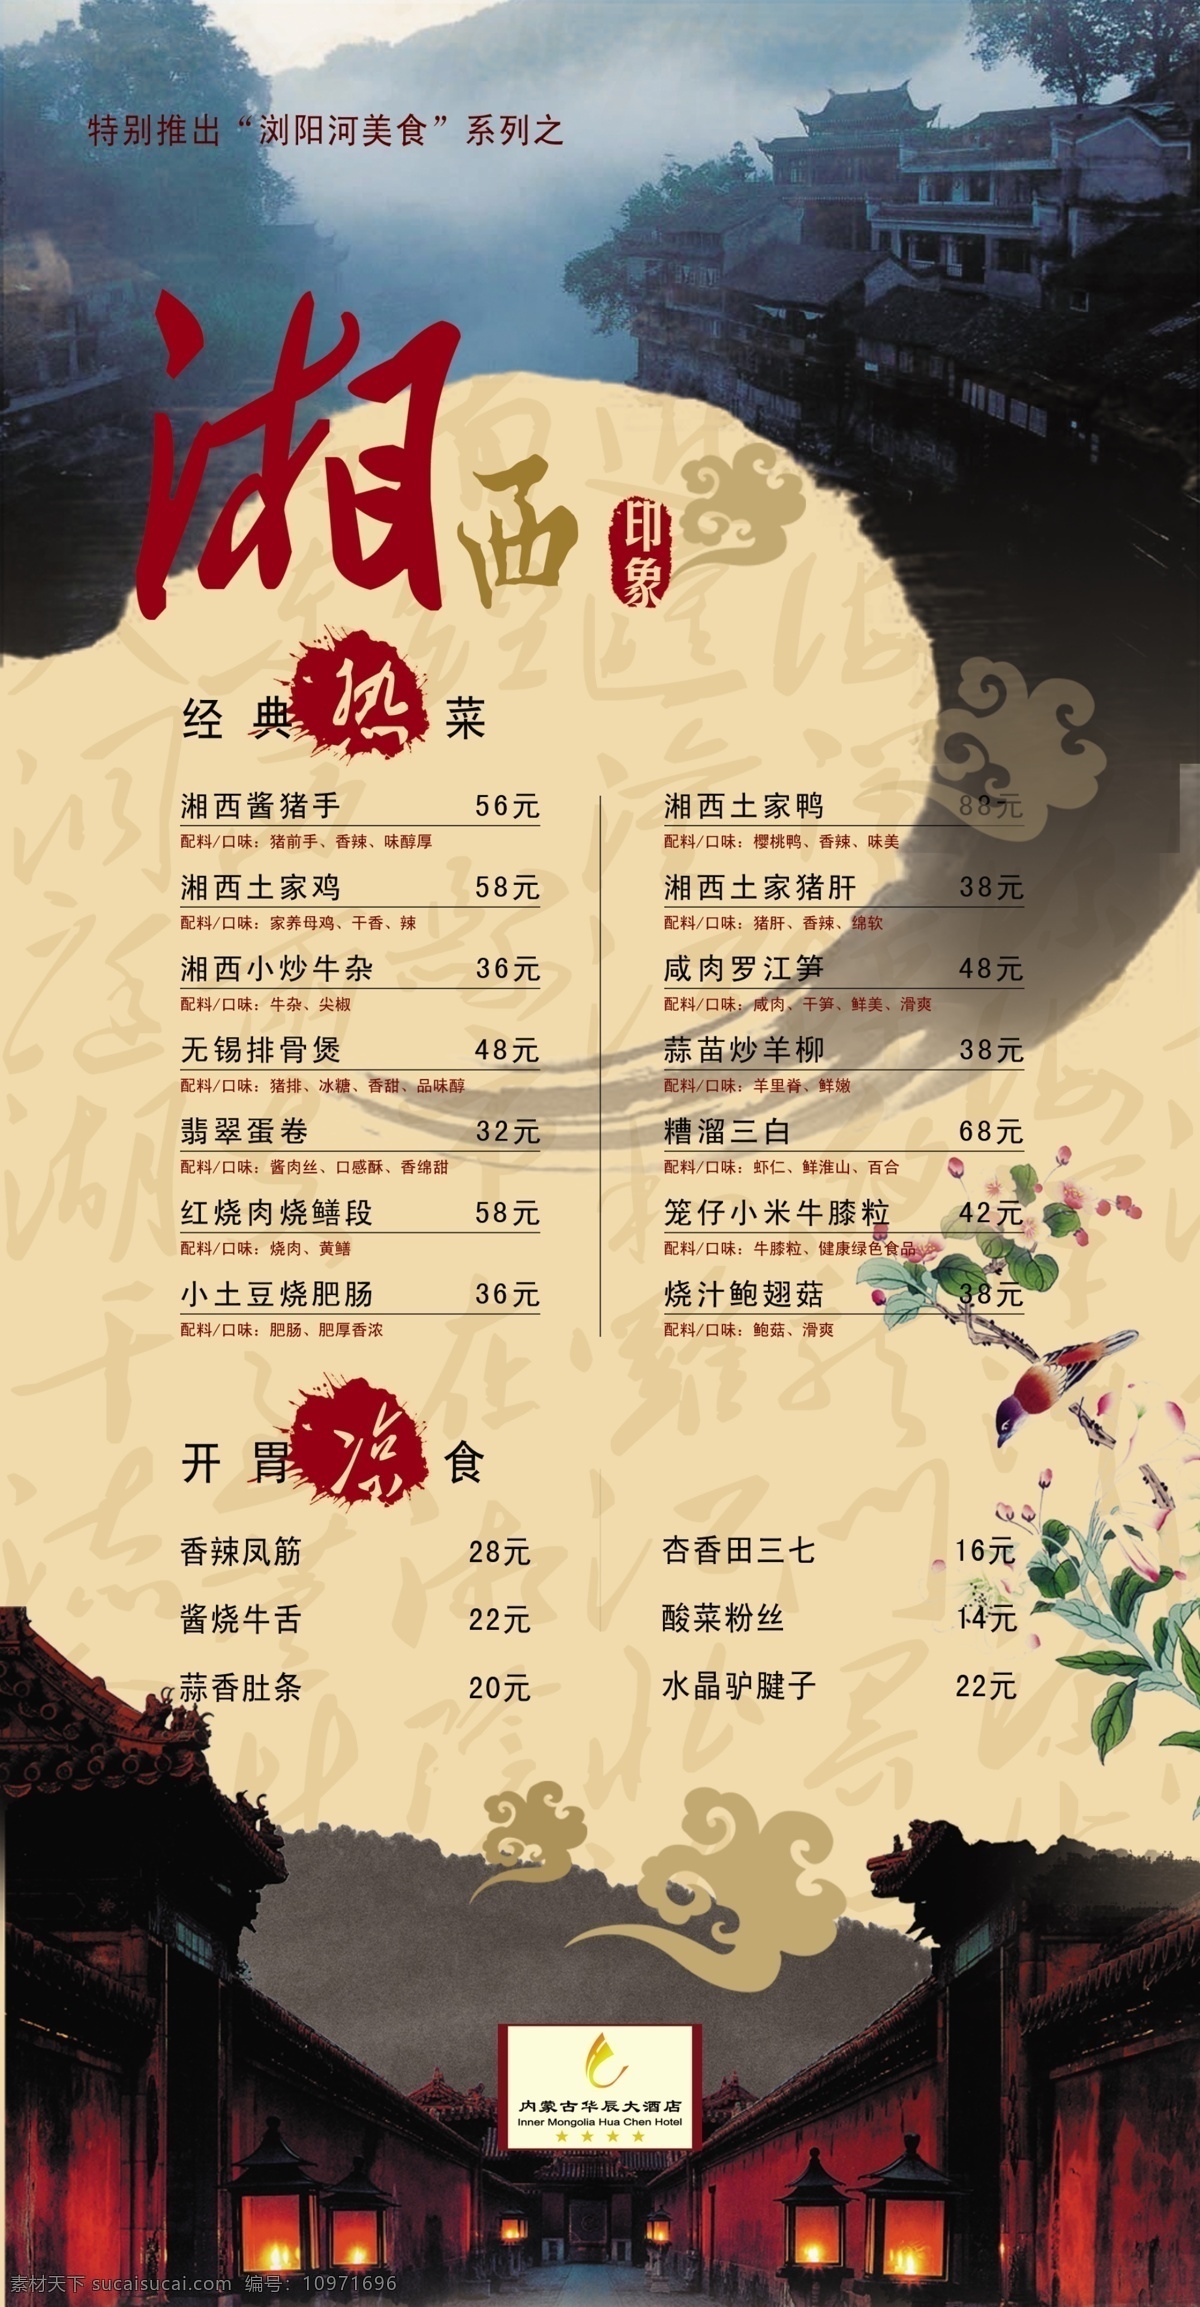 特别推出“浏阳河美食”系列之
湘西
印象
经典热菜
湘西酱猪手 56元
配料/口味：猪前手、香辣、味醇厚
湘西土家鸡 58元
配料/口味：家养母鸡、干香、辣
湘西小炒牛杂 36元
配料/口味：牛杂、尖椒
无锡排骨煲 48元
配料/口味：猪排、冰糖、香甜、品味醇
翡翠蛋卷 32元
配料/口味：酱肉丝、口感酥、香绵甜
红烧肉烧鳝段 58元
配料/口味：烧肉、黄鳝
小土豆烧肥肠 36元
配料/口味：肥肠、肥厚香浓
湘西土家鸭 88元
配料/口味：樱桃鸭、香辣、味美
湘西土家猪肝 38元
配料/口味：猪肝、香辣、绵软
咸肉罗江笋 48元
配料/口味：咸肉、干笋、鲜美、滑爽
蒜苗炒羊柳 38元
配料/口味：羊里脊、鲜嫩
糟溜三白 68元
配料/口味：虾仁、鲜淮山、百合
笼仔小米牛膝粒 42元
配料/口味：牛膝粒、健康绿色食品
烧汁鲍翅菇 38元
配料/口味：鲍菇、滑爽
开胃凉食
香辣凤筋 28元
酱烧牛舌 22元
蒜香肚条 20元
杏香田三七 16元
酸菜粉丝 14元
水晶驴腱子 22元
内蒙古华辰大酒店
Inner Mongolia Hua Chen Hotel
素材天下 sucaisucai.com 编号：10971696